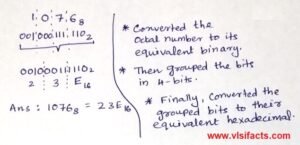 1 0 7 6₈
001000111110₂
001000111110₂
2 3 E₁₆
Ans : 1076₈ = 23E₁₆
* Converted the
Octal number to its
equivalent binary.
* Then grouped the bits
in 4-bits.
* Finally, converted the
grouped bits to their
equivalent hexadecimal.
www.vlsifacts.com